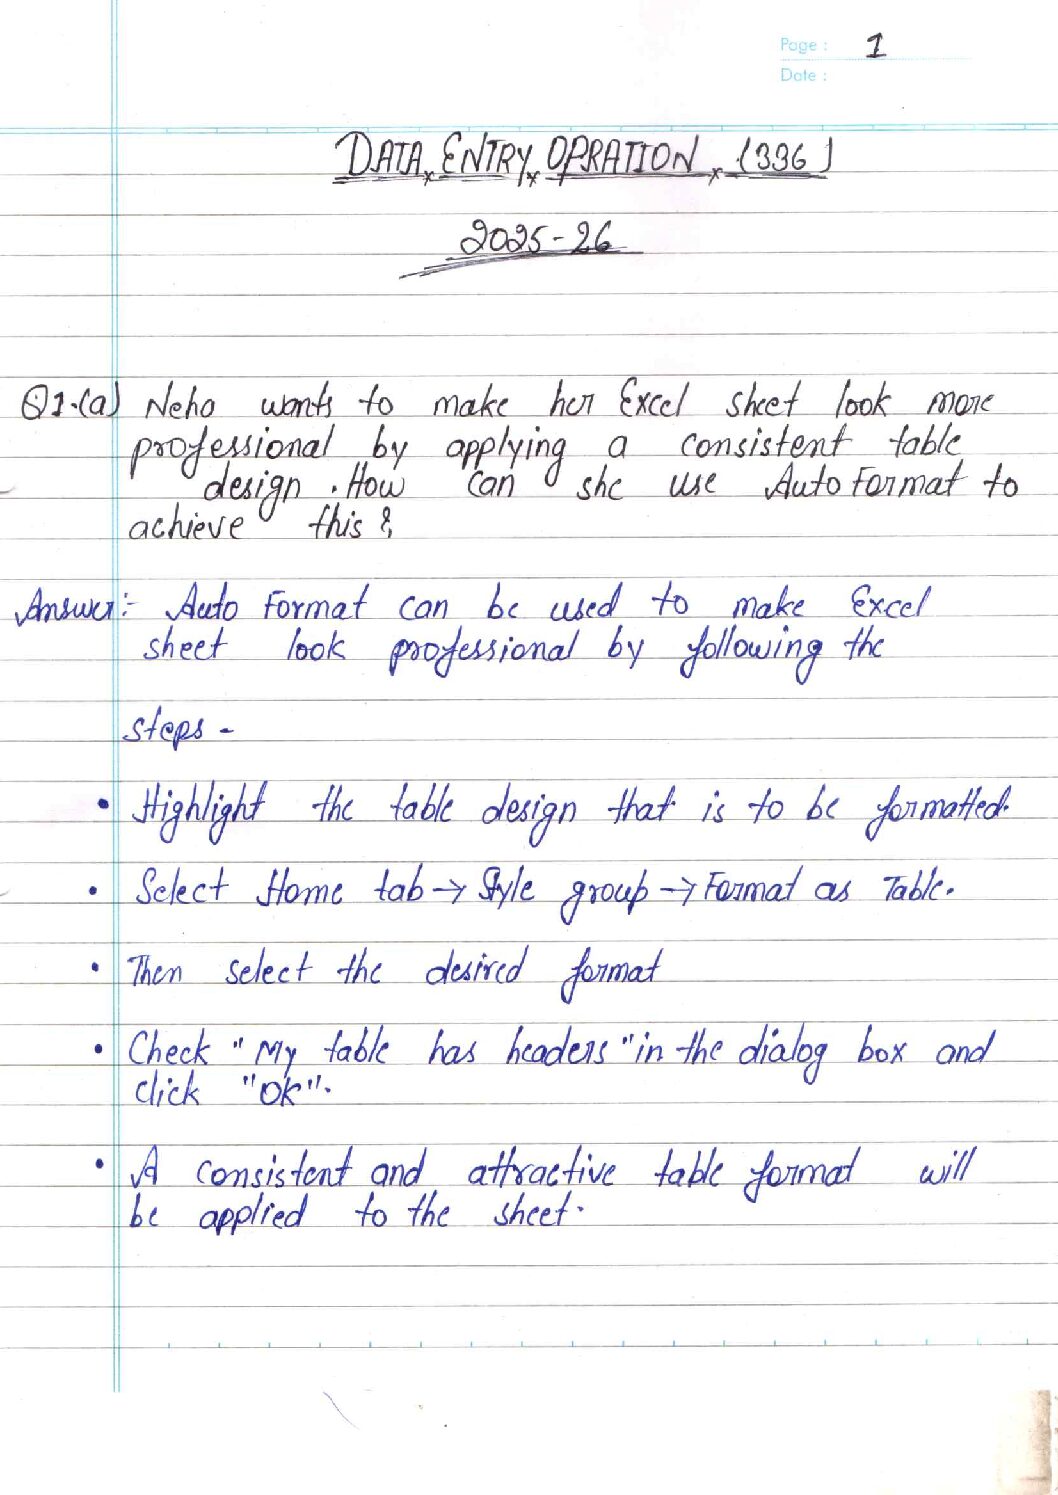 Page : 1
Date :
DATA ENTRY OPRATION (336)
2025-26
Q1.(a) Neha wants to make her Excel sheet look more
professional by applying a consistent table
design. How can she use Auto Format to
achieve this?
Answer:- Auto Format can be used to make Excel
sheet look professional by following the
steps -
• Highlight the table design that is to be formatted.
• Select Home tab → Style group → Format as Table.
• Then select the desired format
• Check "My table has headers" in the dialog box and
click "OK".
• A consistent and attractive table format will
be applied to the sheet.